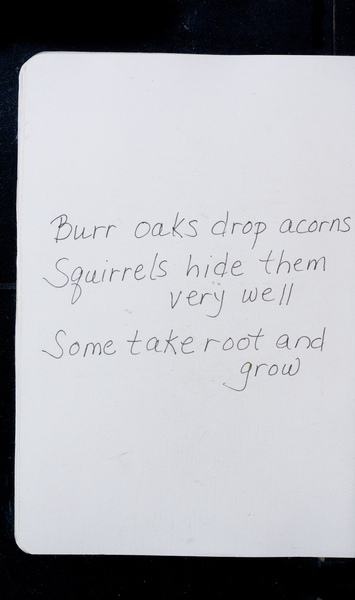 Burr oaks drop acorns
Squirrels hide them
very well
Some take root and
grow